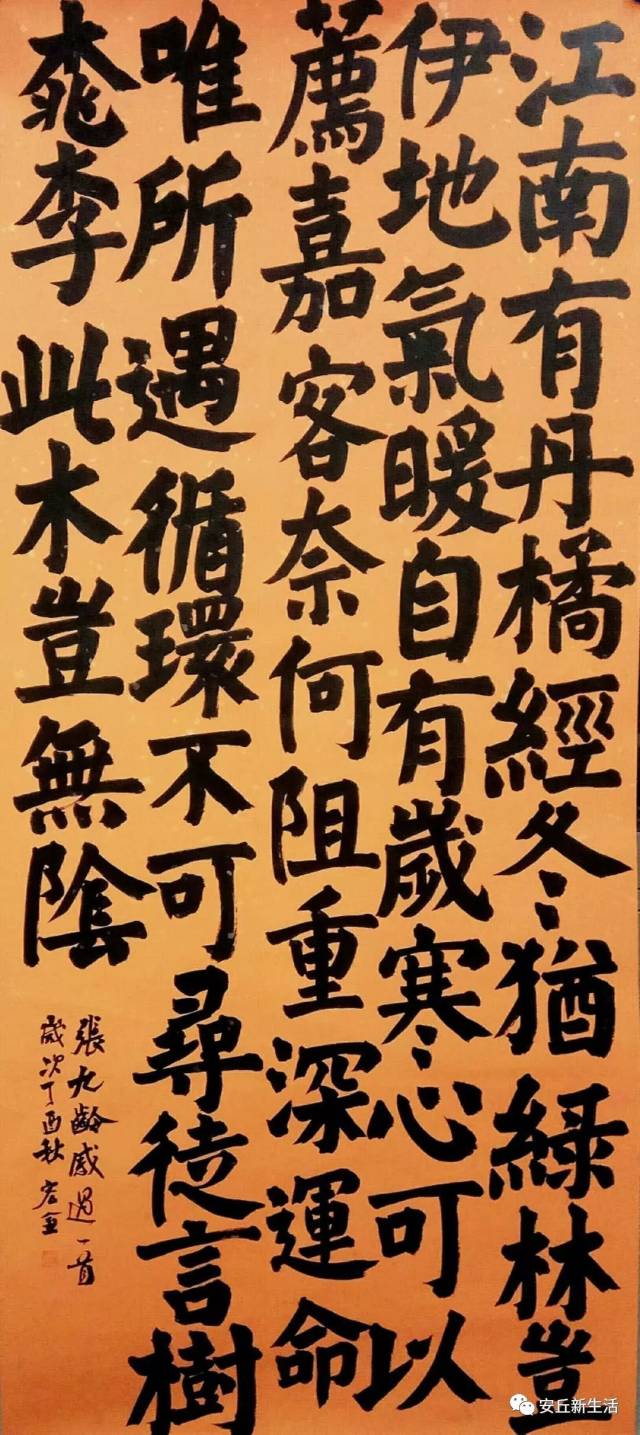 江南有丹橘經冬猶綠林豈
伊地氣暖自有歲寒心可以
薦嘉客奈何阻重深運命
唯所遇循環不可尋徒言樹
桃李此木豈無陰
張九齡感遇一首
歲次丁酉秋宏
安丘新生活